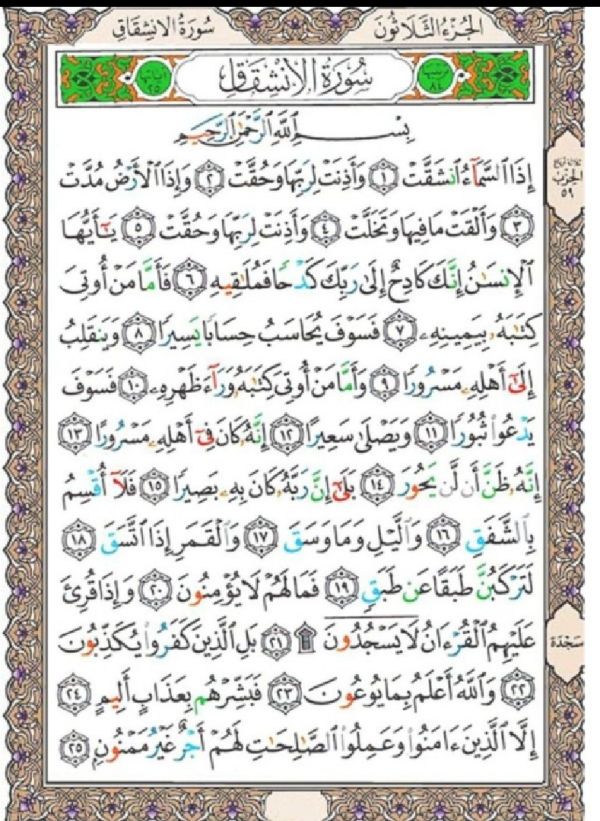 سُورَةُ الانْشِقَاقِ
الجُزْءُ الثَّلَاثُونَ
آيَاتُهَا ٢٥
سُورَةُ الِانْشِقَاقِ
تَرْتِيبُهَا ٨٤
بِسْمِ اللَّهِ الرَّحْمَٰنِ الرَّحِيمِ
إِذَا السَّمَآءُ انشَقَّتْ ١ وَأَذِنَتْ لِرَبِّهَا وَحُقَّتْ ٢ وَإِذَا الْأَرْضُ مُدَّتْ
٣ وَأَلْقَتْ مَا فِيهَا وَتَخَلَّتْ ٤ وَأَذِنَتْ لِرَبِّهَا وَحُقَّتْ ٥ يَٰٓأَيُّهَا
الْإِنسَٰنُ إِنَّكَ كَادِحٌ إِلَىٰ رَبِّكَ كَدْحًا فَمُلَٰقِيهِ ٦ فَأَمَّا مَنْ أُوتِيَ
كِتَٰبَهُۥ بِيَمِينِهِۦ ٧ فَسَوْفَ يُحَاسَبُ حِسَابًا يَسِيرًا ٨ وَيَنقَلِبُ
إِلَىٰٓ أَهْلِهِۦ مَسْرُورًا ٩ وَأَمَّا مَنْ أُوتِيَ كِتَٰبَهُۥ وَرَآءَ ظَهْرِهِۦ ١٠ فَسَوْفَ
يَدْعُوا۟ ثُبُورًا ١١ وَيَصْلَىٰ سَعِيرًا ١٢ إِنَّهُۥ كَانَ فِىٓ أَهْلِهِۦ مَسْرُورًا ١٣
إِنَّهُۥ ظَنَّ أَن لَّن يَحُورَ ١٤ بَلَىٰٓ إِنَّ رَبَّهُۥ كَانَ بِهِۦ بَصِيرًا ١٥ فَلَآ أُقْسِمُ
بِالشَّفَقِ ١٦ وَالَّيْلِ وَمَا وَسَقَ ١٧ وَالْقَمَرِ إِذَا اتَّسَقَ ١٨
لَتَرْكَبُنَّ طَبَقًا عَن طَبَقٍ ١٩ فَمَا لَهُمْ لَا يُؤْمِنُونَ ٢٠ وَإِذَا قُرِئَ
عَلَيْهِمُ الْقُرْءَانُ لَا يَسْجُدُونَ ۩ ٢١ بَلِ الَّذِينَ كَفَرُوا۟ يُكَذِّبُونَ
٢٢ وَاللَّهُ أَعْلَمُ بِمَا يُوعُونَ ٢٣ فَبَشِّرْهُم بِعَذَابٍ أَلِيمٍ ٢٤
إِلَّا الَّذِينَ ءَامَنُوا۟ وَعَمِلُوا۟ الصَّٰلِحَٰتِ لَهُمْ أَجْرٌ غَيْرُ مَمْنُونٍ ٢٥
الحِزْب
٥٩
سَجْدَة